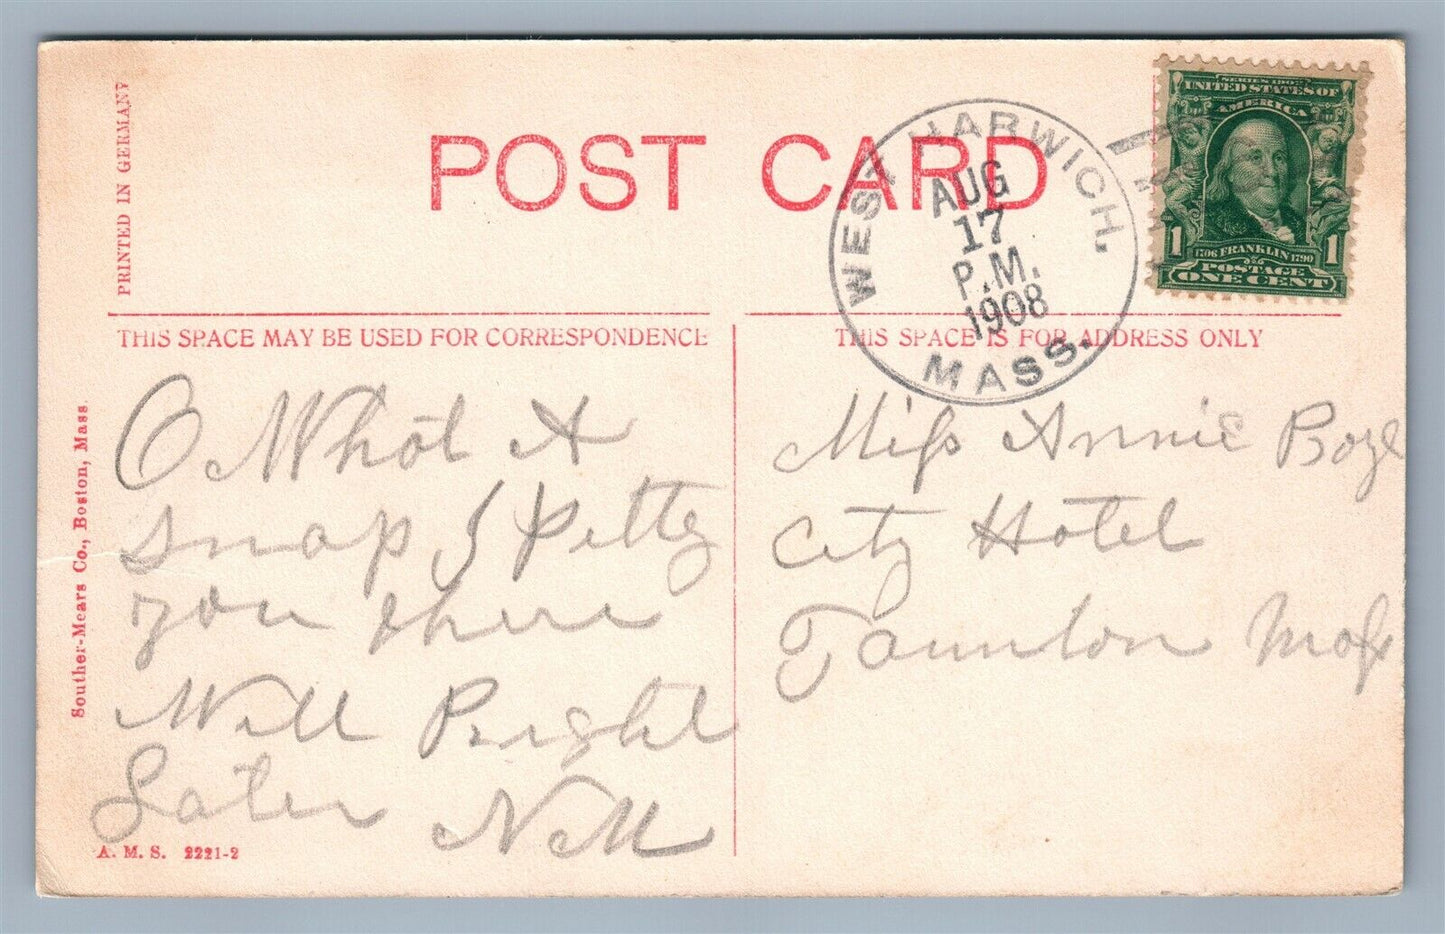 PRINTED IN GERMANY
POST CARD
WEST HARWICH,
AUG
17
P.M.
1908
MASS.
SERIES 1902
UNITED STATES OF
AMERICA
1706 FRANKLIN 1790
POSTAGE
1 ONE CENT 1
THIS SPACE MAY BE USED FOR CORRESPONDENCE
THIS SPACE IS FOR ADDRESS ONLY
Souther-Mears Co., Boston, Mass.
O What A
snap I Pitty
you there
Will Right
Later NM
Miss Annie Boyl
City Hotel
Taunton Mass
A. M. S. 2221-2